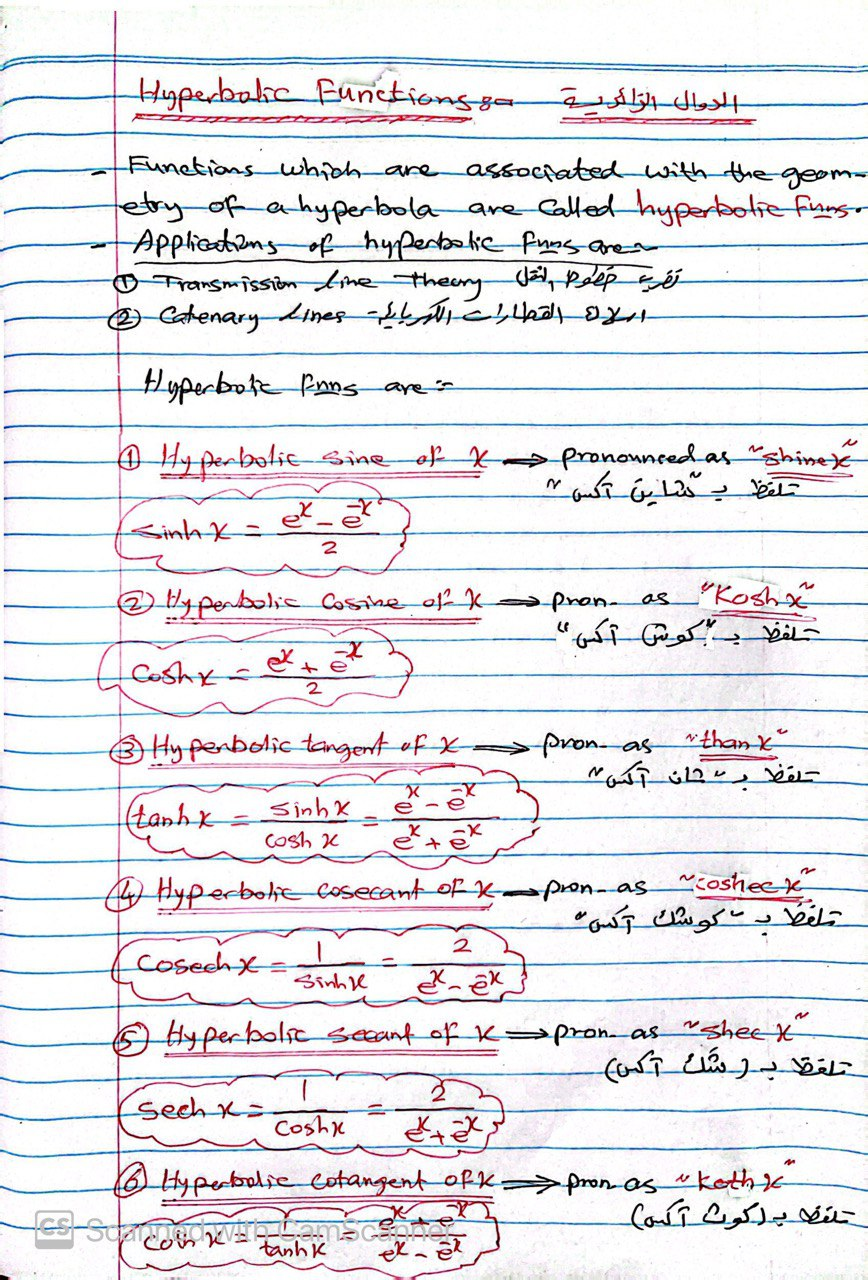 Hyperbolic Functions :- الدوال الزائدية
- Functions which are associated with the geom-
etry of a hyperbola are called hyperbolic Funs.
- Applications of hyperbolic funs are:-
① Transmission line theory خطوط النقل
② Catenary lines - القطارات الكهربائية
Hyperbolic Funs are :-
① Hyperbolic sine of x → pronounced as "shine x"
تلفظ بـ "شاين آكس"
sinh x = (e^x - e^-x) / 2
② Hyperbolic Cosine of x → pron. as "Kosh x"
تلفظ بـ "كوش آكس"
Cosh x = (e^x + e^-x) / 2
③ Hyperbolic tangent of x → pron. as "than x"
تلفظ بـ "ثان آكس"
tanh x = sinh x / cosh x = (e^x - e^-x) / (e^x + e^-x)
④ Hyperbolic cosecant of x → pron. as "coshec x"
تلفظ بـ "كوشك آكس"
Cosech x = 1 / sinh x = 2 / (e^x - e^-x)
⑤ Hyperbolic secant of x → pron. as "shec x"
تلفظ بـ (شك آكس)
Sech x = 1 / Cosh x = 2 / (e^x + e^-x)
⑥ Hyperbolic cotangent of x → pron as "Koth x"
تلفظ بـ (كوث آكس)
Coth x = 1 / tanh x = (e^x + e^-x) / (e^x - e^-x)
CS Scanned with CamScanner